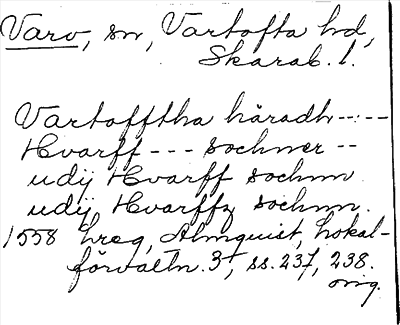 Varv, sn, Vartofta hd,
Skarab. l.
Vartofftha häradh-----
Hvarff --- sochner --
udij Hvarff sochnn
udij Hvarffz sochnn.
1558 hreg, Almquist, Lokal-
förvaltn. 3, ss. 237, 238.
orig.